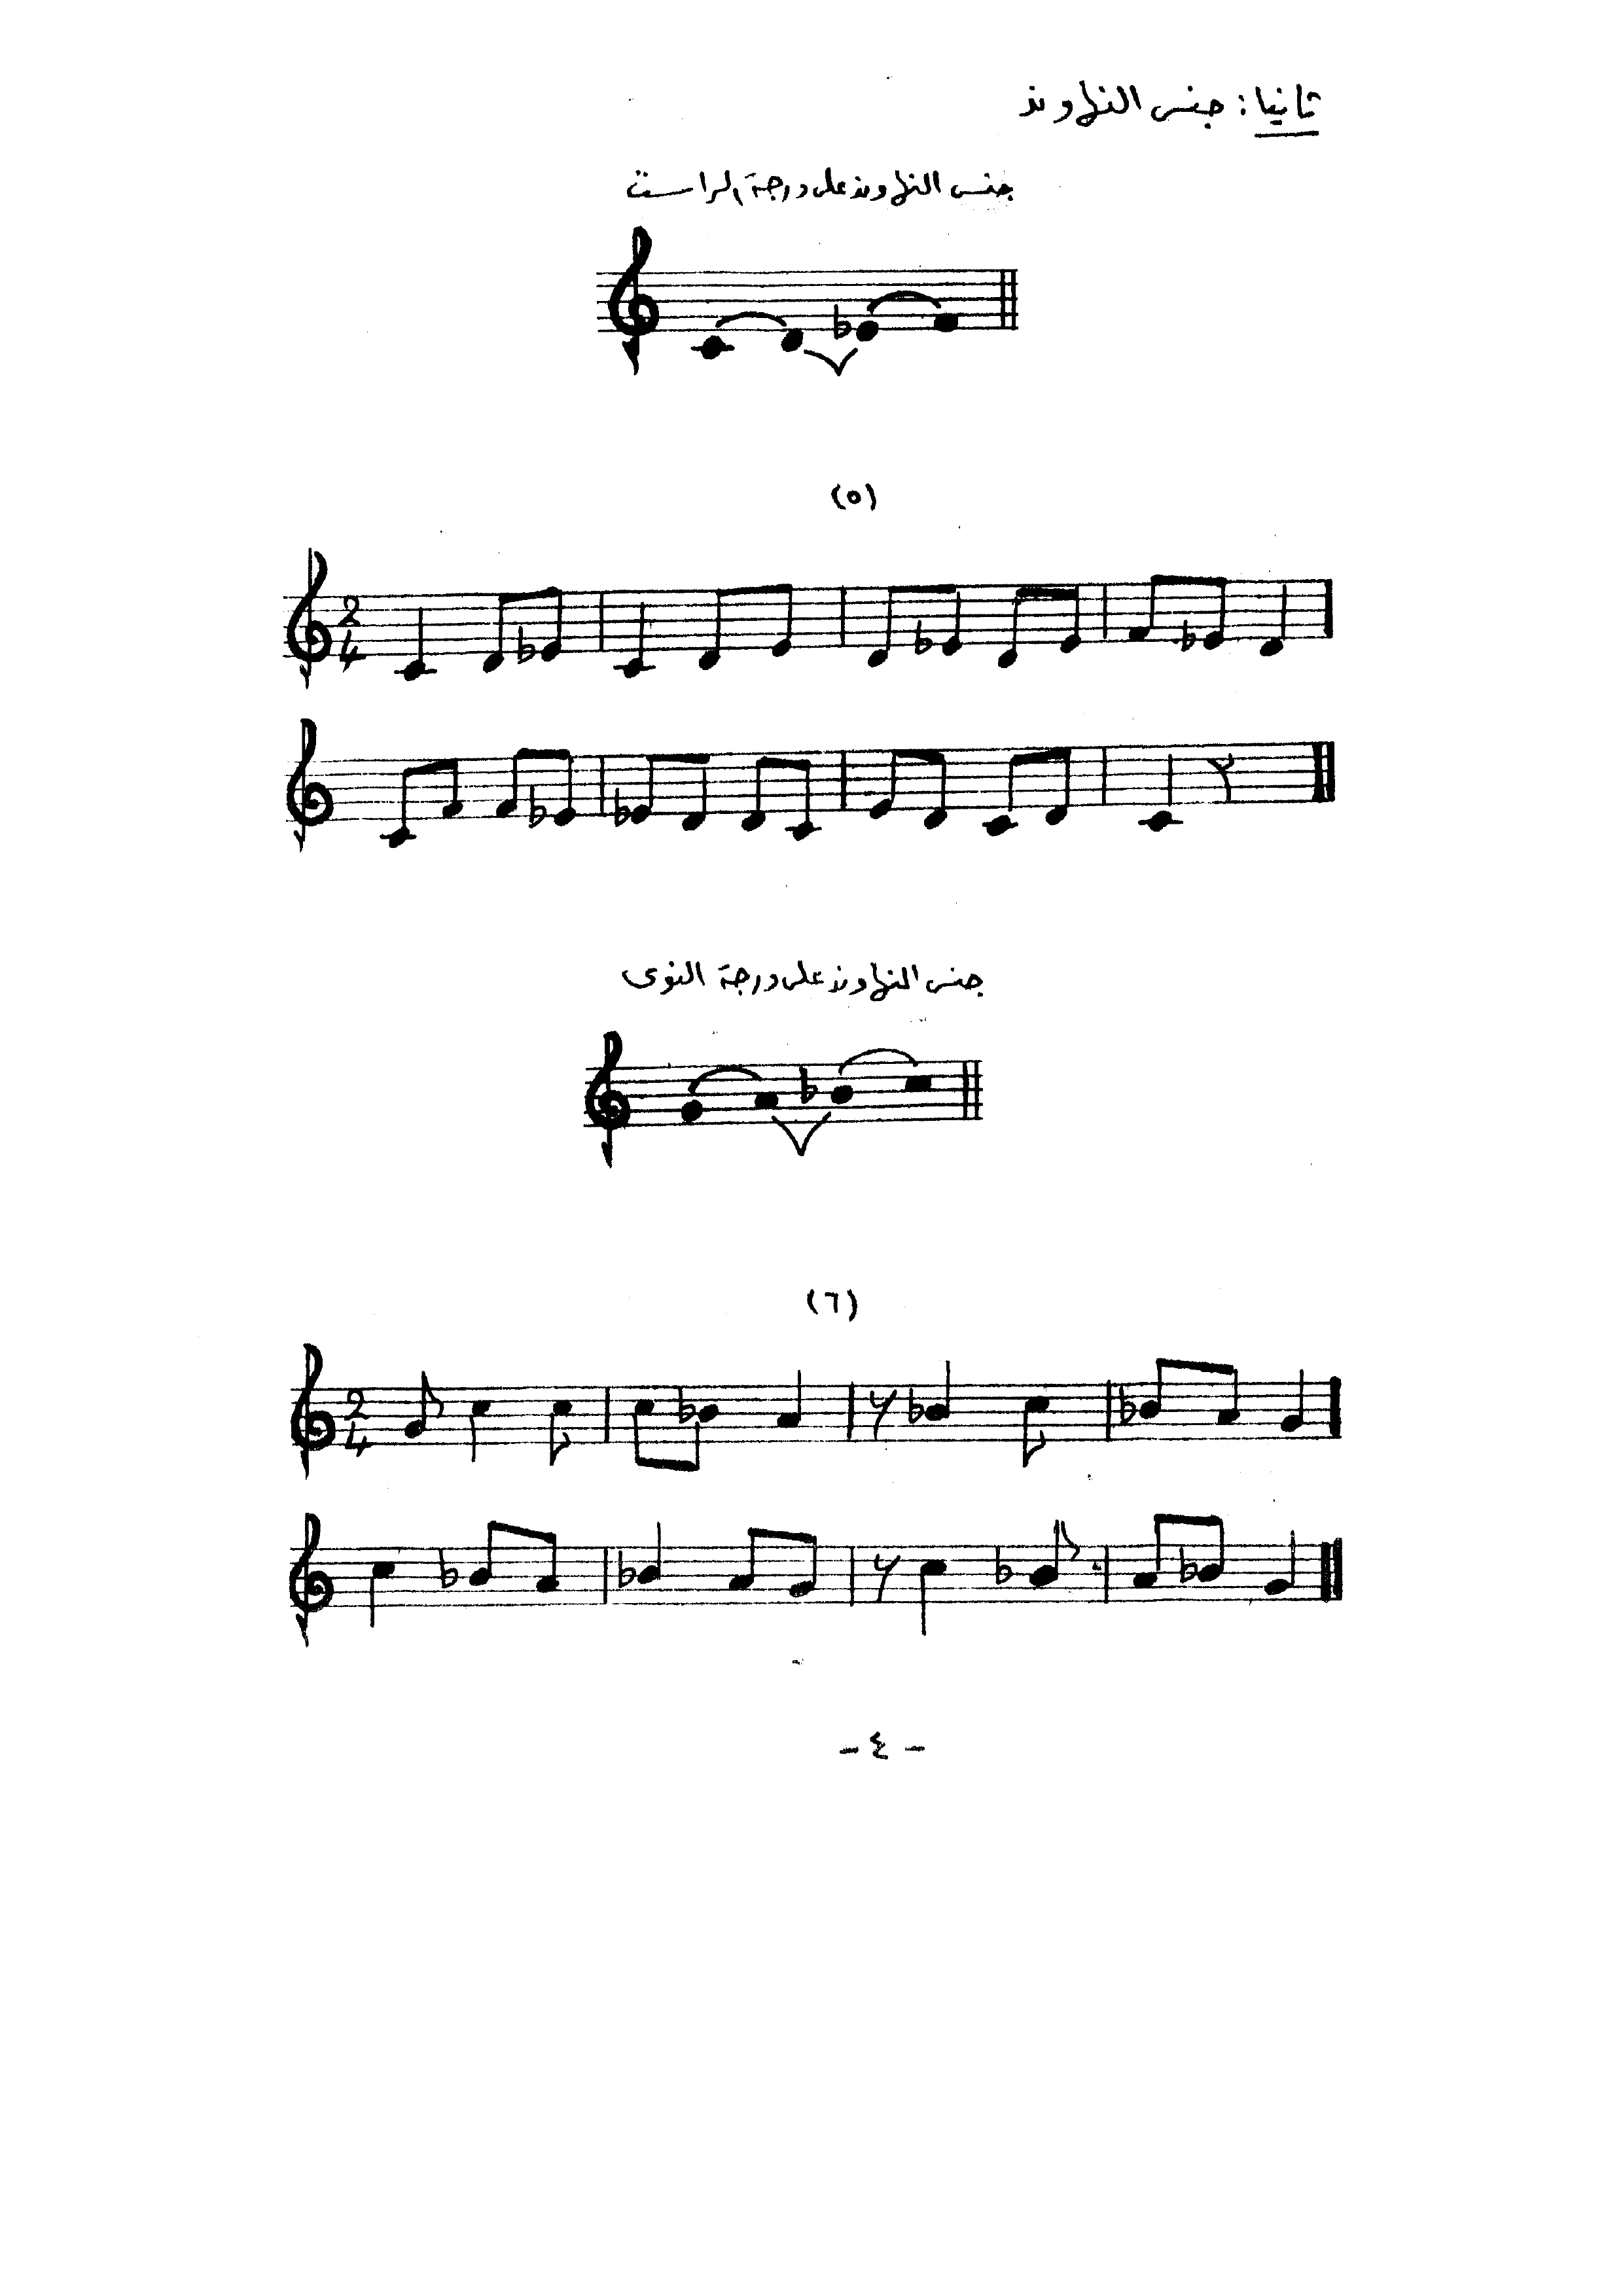 ثانيا: جنس النهاوند
جنس النهاوند على درجة الراست
(٥)
2
4
جنس النهاوند على درجة النوى
(٦)
2
4
- ٤ -